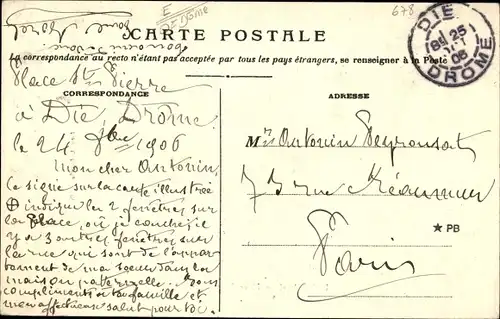 E
D⁰ Drôme
678
CARTE POSTALE
La correspondance au recto n'étant pas acceptée par tous les pays étrangers, se renseigner à la Poste
DIE
25
06
DRÔME
CORRESPONDANCE
ADRESSE
Place St Pierre
à Die, Drôme
le 24 8bre 1906
Mon cher Antonin,
ce signe sur la carte illustrée
⊕ indique les 2 fenêtres sur
la place, où je couche, il
y a 3 autres fenêtres sur
la rue qui sont de l'appar
tement de ma sœur dans la
maison paternelle. Nous
compliments à ta famille et
mon affectueux salut pour toi.
Mr Antonin Peyronsat
73 rue Réaumur
★ PB
Paris